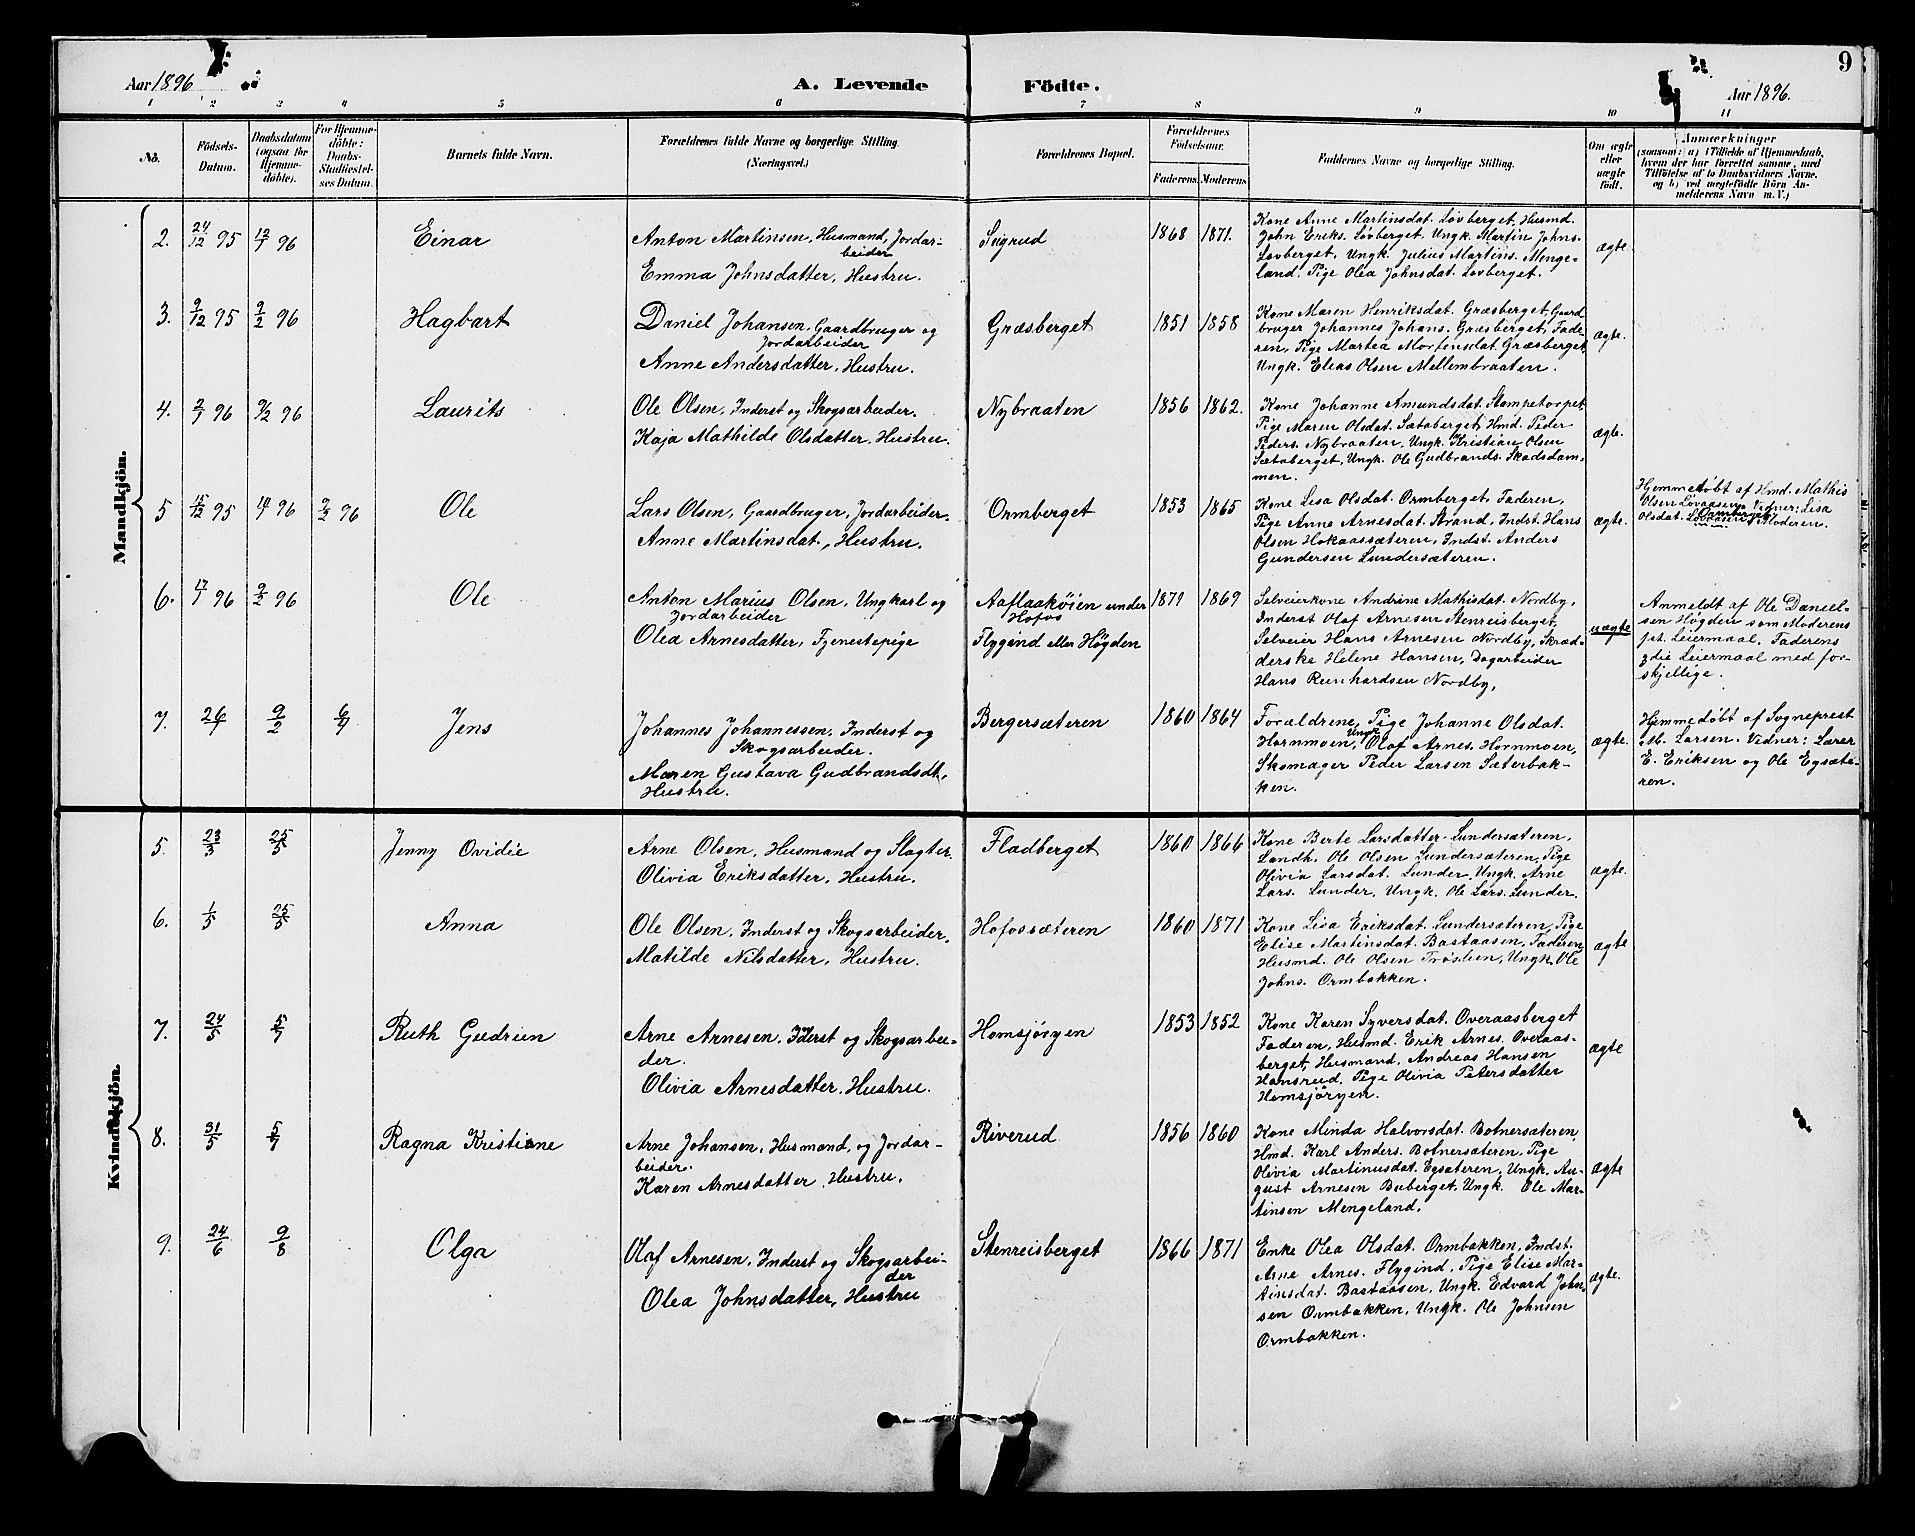 Aar 1896
A. Levende
Födte.
9
Aar 1896.
1 2 3 4 5 6 7 8 9 10 11
No.
Födsels-
Datum.
Daabsdatum
(ogsaa for
Hjemme-
döbte).
For Hjemme-
döbte:
Daabs-
Stadfæstel-
ses Datum.
Barnets fulde Navn.
Forældrenes fulde Navne og borgerlige Stilling.
(Næringsvei.)
Forældrenes Bopæl.
Forældrenes
Födselsaar.
Faderens. Moderens.
Faddernes Navne og borgerlige Stilling.
Om ægte
eller
uægte
födt.
Anmærkninger
(saasom: a) i Tilfælde af Hjemmedaab,
hvem der har forrettet samme, med
Tilföielse af to Daabsvidners Navne,
og b) ved uægtefödte Börn An-
melderens Navn m. V.)
Mandkjön.
2. 24/12 95 12/1 96
Einar
Anton Martinsen, Husmand, Jordar-
beider
Emma Johnsdatter, Hustru.
Sigrud
1868 1871.
Kone Anne Martinsdat. Lövberget, Husmd.
John Eriks. Lövberget, Ungk. Martin Johns.
Lövberget, Ungk. Julius Martins. Menge-
land, Pige Olea Johnsdat. Lövberget.
ægte.
3. 9/12 95 9/2 96
Hagbart
Daniel Johansen, Gaardbruger og
Jordarbeider
Anne Andersdatter, Hustru.
Græsberget
1851 1858
Kone Maren Henriksdat. Græsberget, Gaard
bruger Johannes Johans. Græsberget, Fade-
ren, Pige Martea Mortensdat. Græsberget,
Ungk. Elias Olsen Mellembraaten.
ægte.
4. 2/1 96 9/2 96
Laurits
Ole Olsen, Inderst og Skogsarbeider.
Kaja Mathilde Olsdatter, Hustru.
Nybraaten
1856 1862.
Kone Johanne Amundsdat. Stampetorpet,
Pige Maren Olsdat. Sætaberget, Hmd. Peder
Peders. Nybraaten, Ungk. Kristian Olsen
Sætaberget, Ungk. Ole Gudbrands. Skadsdam-
men.
ægte.
5 15/12 95 96 9/2 96
Ole
Lars Olsen, Gaardbruger, Jordarbeider.
Anne Martinsdat., Hustru.
Ormberget
1853 1865
Kone Lisa Olsdat. Ormberget, Faderen,
Pige Anne Arnesdat. Strand, Indst. Hans
Olsen Hokaassæteren, Indst. Anders
Gundersen Lundersæteren.
ægte.
Hjemmedöbt af Hmd. Mathis
Olsen Lövaasen, Vidner: Lisa
Ormberget
Olsdat. Lövaasen, Moderen.
6. 17/1 96 9/2 96
Ole
Anton Marius Olsen, Ungkarl og
Jordarbeider
Olea Arnesdatter, Tjenestepige
Aaflaaköien under
Hofos
Flygind eller Högden
1871 1869
Selveierkone Andrine Mathisdat. Nordby,
Inderst Olaf Arnesen Stenreisberget,
Selveier Hans Arnesen Nordby, Skræd-
derske Helene Hansen, Dagarbeider
Hans Reinhardsen Nordby,
uægte
Anmeldt af Ole Daniel-
sen Högden som Moderens
1st. Leiermaal, Faderens
3die Leiermaal med for-
skjellige.
7. 26/1 9/2 6/4
Jens
Johannes Johannessen, Inderst og
Skogsarbeider.
Maren Gustava Gudbrandsdt,
Hustru.
Bergersæteren
1860 1864
Forældrene, Pige Johanne Olsdat.
Hornmoen, Ungk. Olaf Arnes. Hornmoen,
Skomager Peder Larsen Sæterbak-
ken.
ægte.
Hjemmedöbt af Sogneprest
M. Larsen. Vidner: Lærer
E. Eriksen og Ole Egsæte-
ren.
Kvindekjön.
5. 23/3 25/5
Jenny Ovidie
Arne Olsen, Husmand og Slagter.
Olivia Eriksdatter, Hustru.
Fladberget
1860 1866
Kone Berte Larsdatter Lundersæteren,
Landh. Ole Olsen Lundersæteren, Pige
Olivia Larsdat. Lunder, Ungk. Arne
Lars. Lunder, Ungk. Ole Lars. Lunder.
ægte.
6. 1/5 25/5
Anna
Ole Olsen, Inderst og Skogsarbeider.
Matilde Nilsdatter, Hustru.
Hofossæteren
1860 1871
Kone Lisa Eriksdat. Lundersæteren, Pige
Elise Martinsdat. Bastaasen, Faderen,
Husmd. Ole Olsen Tröslien, Ungk. Ole
Johns. Ormbakken.
ægte
7. 24/5 5/7
Ruth Gudrun
Arne Arnesen, Iderst og Skogsarbei-
der.
Olivia Arnesdatter, Hustru.
Homsjöryen
1853 1852
Kone Karen Syversdat. Overaasberget
Faderen, Husmd. Erik Arnes. Overaas-
berget, Husmand, Andreas Hansen
Hansrud, Pige Olivia Petersdatter
Homsjöryen.
ægte
8. 31/5 5/7
Ragna Kristiane
Arne Johansen, Husmand, og Jordar-
beider.
Karen Arnesdatter, Hustru.
Riverud
1856 1860
Kone Minda Halvorsdat. Botnersæteren,
Hmd. Karl Anders. Botnersæteren, Pige
Olivia Martinusdat. Egsæteren, Ungk. Au-
gust Arnesen Buberget, Ungk. Ole Mar-
tinsen Mengeland.
ægte
9. 24/6 9/8
Olga
Olaf Arnesen, Inderst og Skogsarbei-
der
Olea Johnsdatter, Hustru
Stenreisberget
1866 1871
Enke Olea Olsdat. Ormbakken, Indst.
Arne Arnes. Flygind, Pige Elise Mar-
tinsdat. Bastaasen, Ungk. Edvard John-
sen Ormbakken, Ungk. Ole Johnsen
Ormbakken.
ægte.